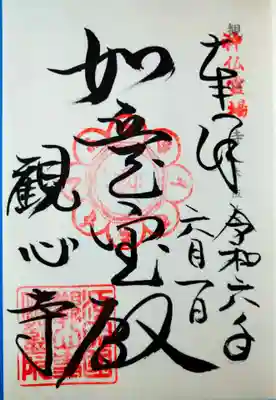 奉拝
令和六年
六月一日
如意宝殿
観心寺
神仏霊場